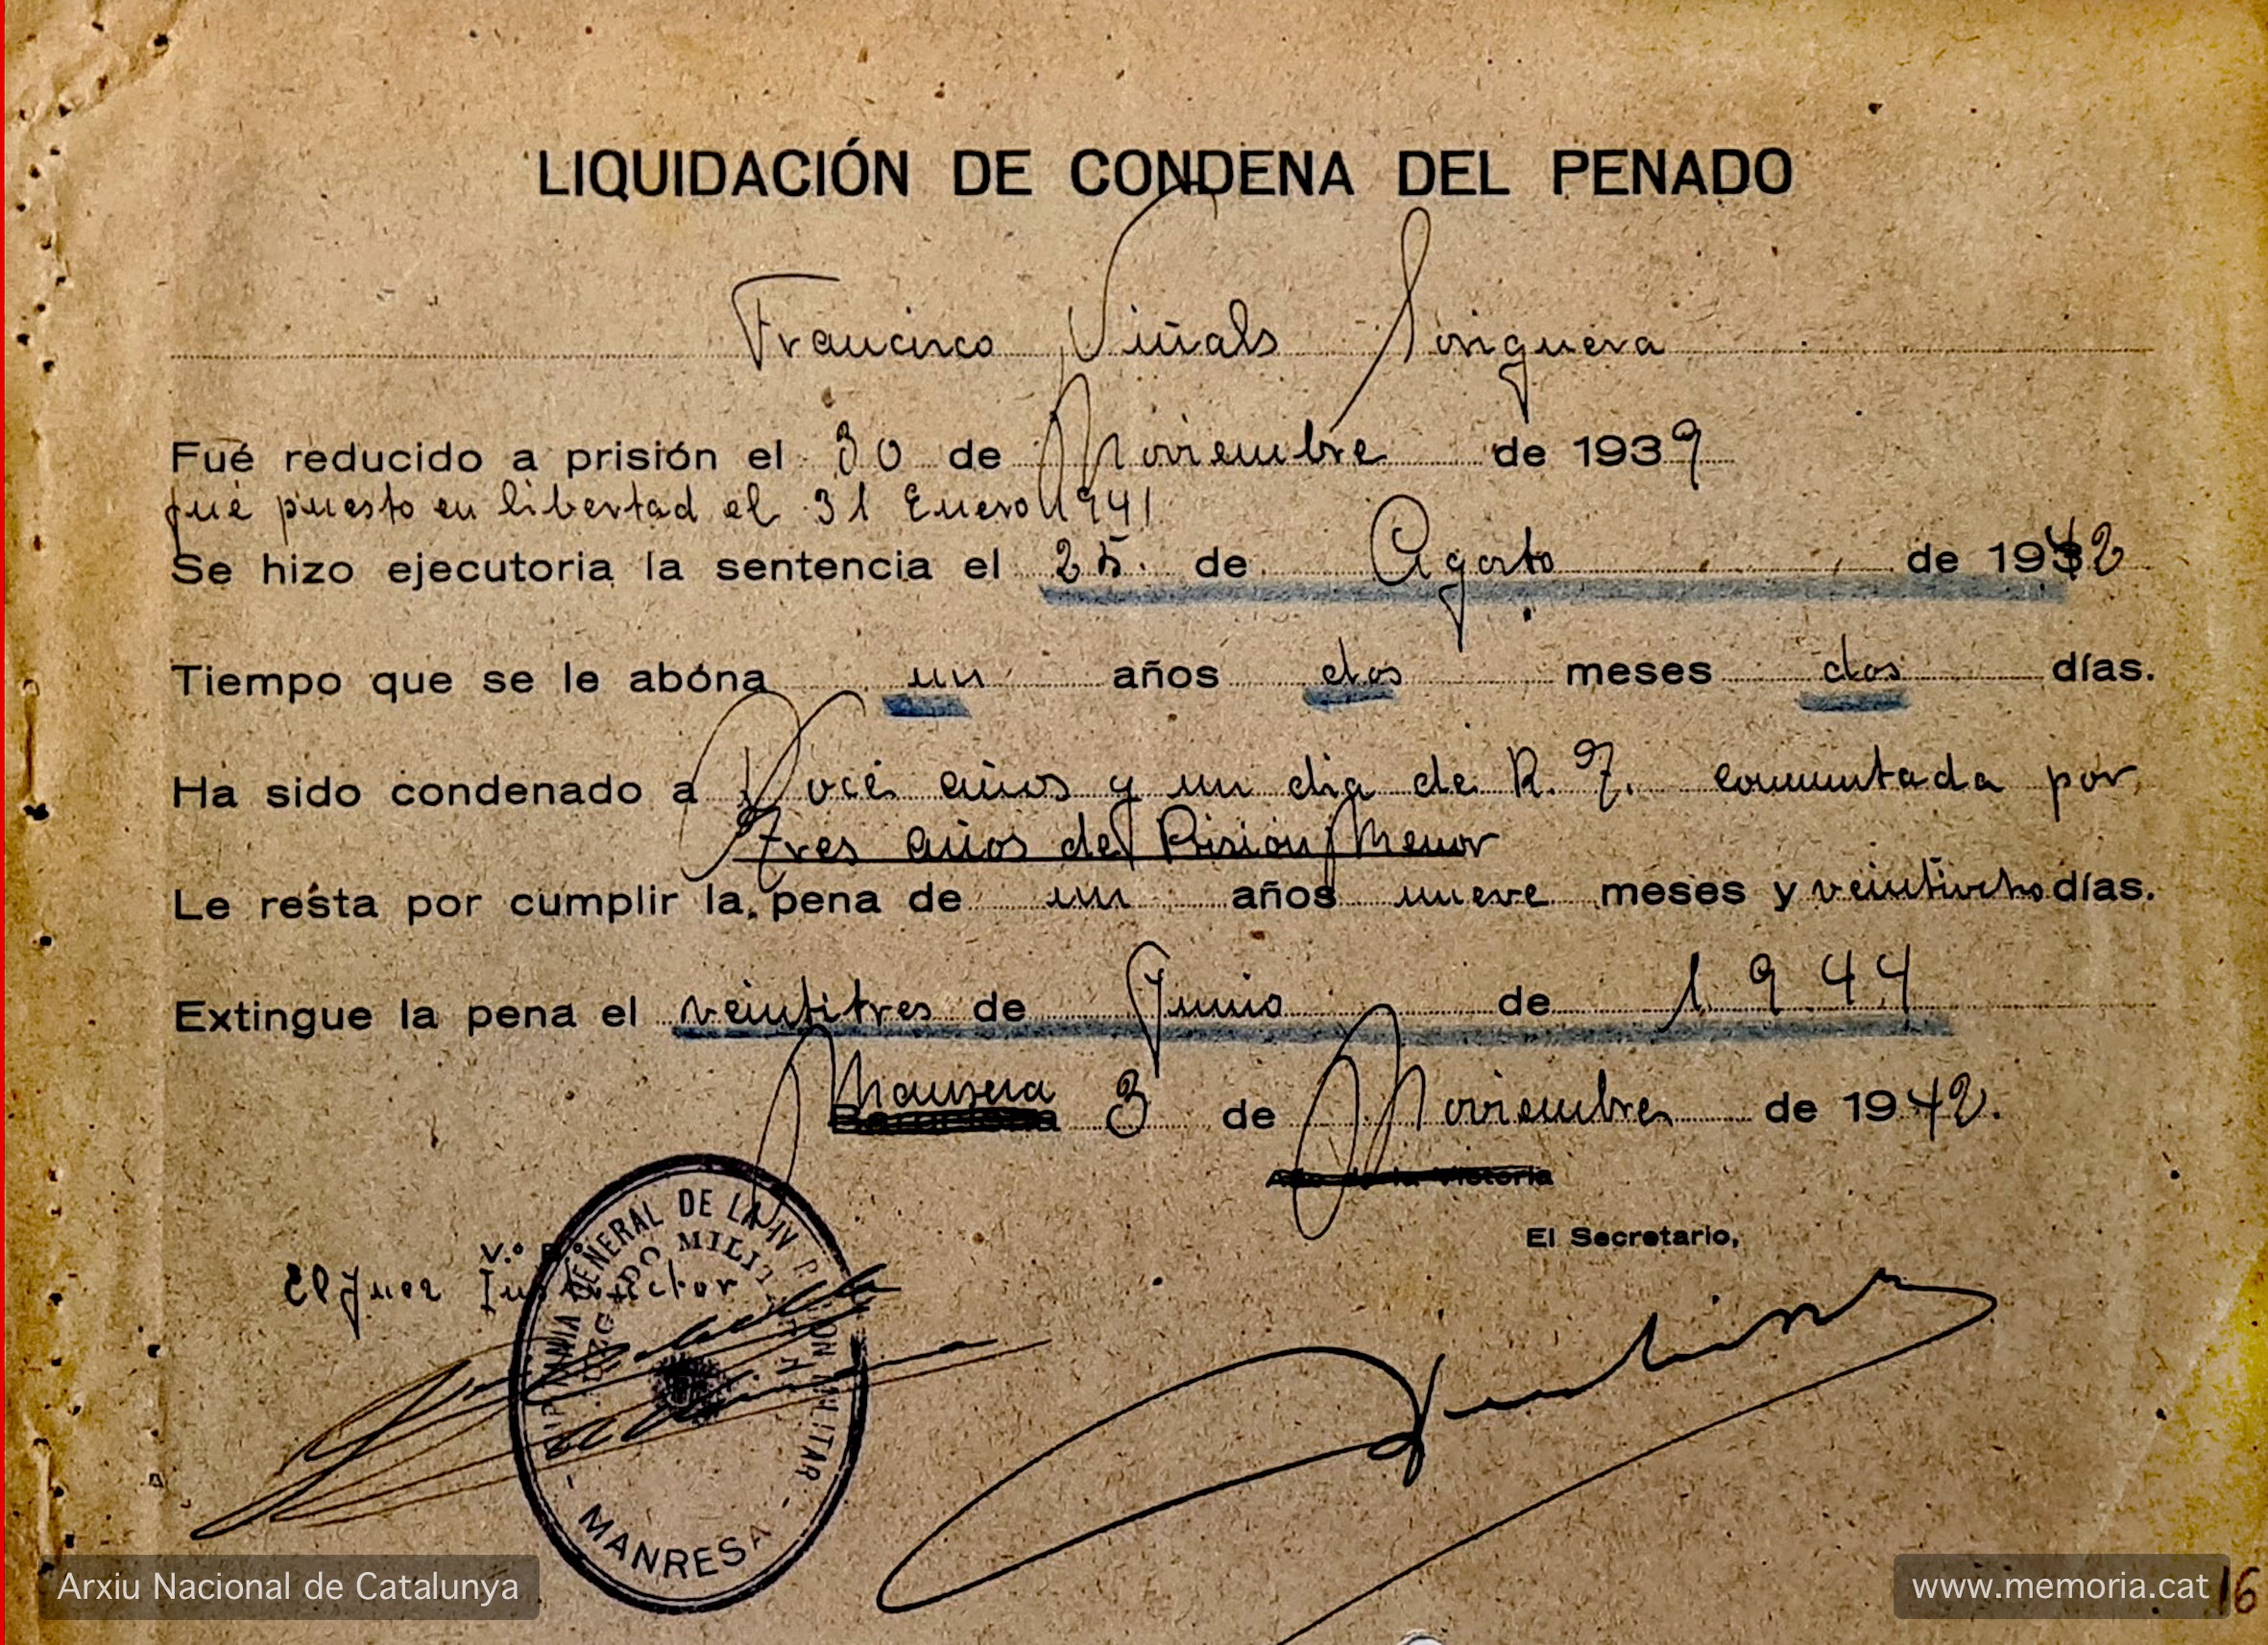 LIQUIDACIÓN DE CONDENA DEL PENADO
Francisco Viñals Soriguera
Fué reducido a prisión el 30 de Noviembre de 1939
fué puesto en libertad el 31 Enero 1941
Se hizo ejecutoria la sentencia el 25. de Agosto de 1942
Tiempo que se le abóna un años dos meses dos días.
Ha sido condenado a Doce años y un dia de R. T. conmutada por
Tres años de Prisión Menor
Le resta por cumplir la pena de un años nueve meses y veintiocho días.
Extingue la pena el veintitres de Junio de 1944
Manresa 3 de Noviembre de 1942.
Año de la Victoria
El Secretario,
V.º B.º
El Juez Instructor
CAPITANIA GENERAL DE LA IV REGION MILITAR
JUZGADO MILITAR
- MANRESA -
Arxiu Nacional de Catalunya
www.memoria.cat
16